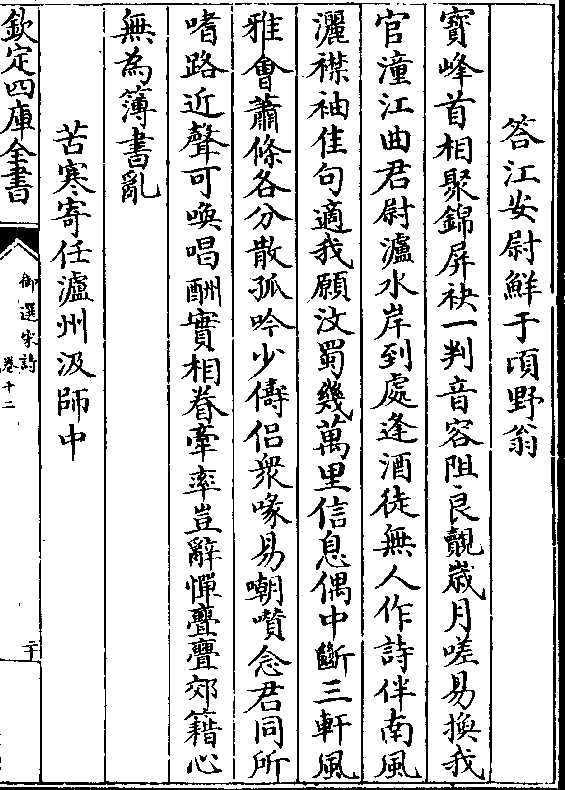 答江安尉鮮于頃野翁
寶峰首相聚錦屏袂一判音容阻良覿歲月嗟易換我
官潼江曲君尉瀘水岸到處逢酒徒無人作詩伴南風
灑襟袖佳句適我願汶蜀幾萬里信息偶中斷三軒風
雅㑹蕭條各分散孤吟少儔侣衆喙易嘲讃念君同所
嗜路近聲可喚唱酬實相眷牽率豈辭憚亹亹郊籍心
無為簿書亂
苦寒寄任瀘州汲師中
欽定四庫全書
御選宋詩
卷十二
二十